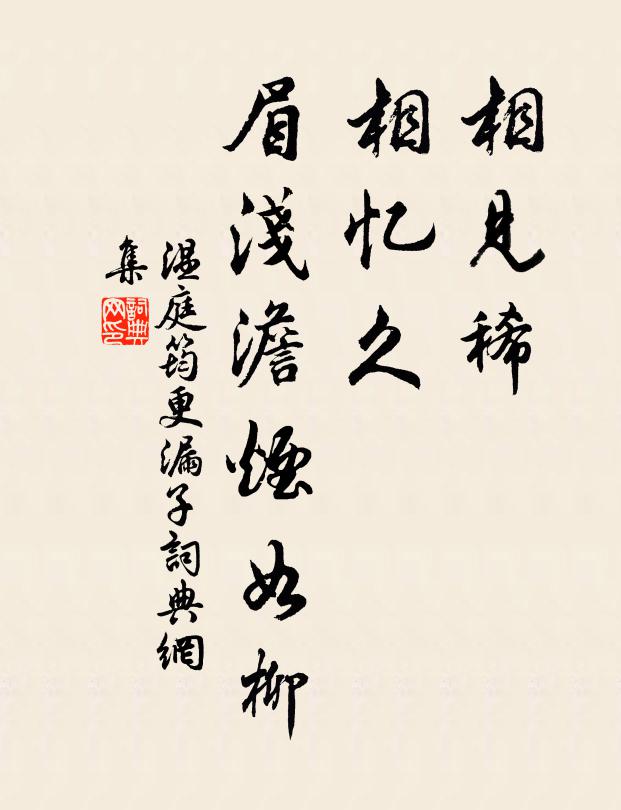 相見稀
相忆久
眉淺澹煙如柳
温庭筠更漏子詞典網
集
詞典網印